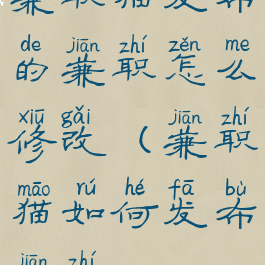 兼职猫发布
de jiān zhí zěn me
的兼职怎么
xiū gǎi jiān zhí
修改（兼职
māo rú hé fā bù
猫如何发布
jiān zhí